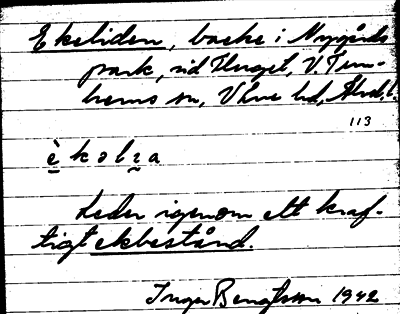 Ekeliden, backe i Nygårds
park, vid Huset, V. Tun-
hems sn, Väne hd, Älvsb. l.
113
è k ə l ɩ a
Leder igenom ett kraf-
tigt ekbestånd.
Inger Bengtsson 1942